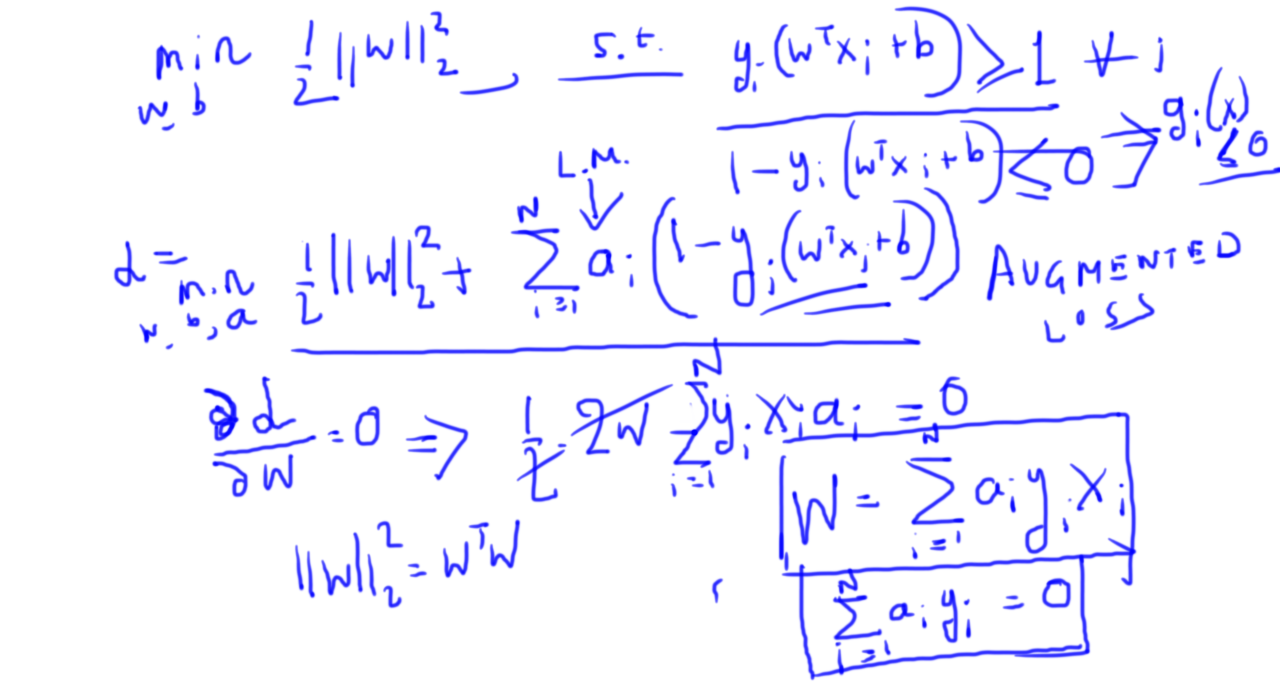 min w, b 1/2 ||w||₂² s.t. yᵢ(wᵀxᵢ+b) ≥ 1 ∀ i
1 - yᵢ(wᵀxᵢ+b) ≤ 0 → gᵢ(x) ≤ 0
L.M.
d = min w, b, a 1/2 ||w||₂² + ∑ᵢ₌₁ᴺ aᵢ(1 - yᵢ(wᵀxᵢ+b)) AUGMENTED
LOSS
∂d/∂w = 0 ⇒ 1/2 · 2w ∑ᵢ₌₁ᴺ yᵢxᵢaᵢ = 0
w = ∑ᵢ₌₁ᴺ aᵢyᵢxᵢ
||w||₂² = wᵀw
∑ᵢ₌₁ᴺ aᵢyᵢ = 0